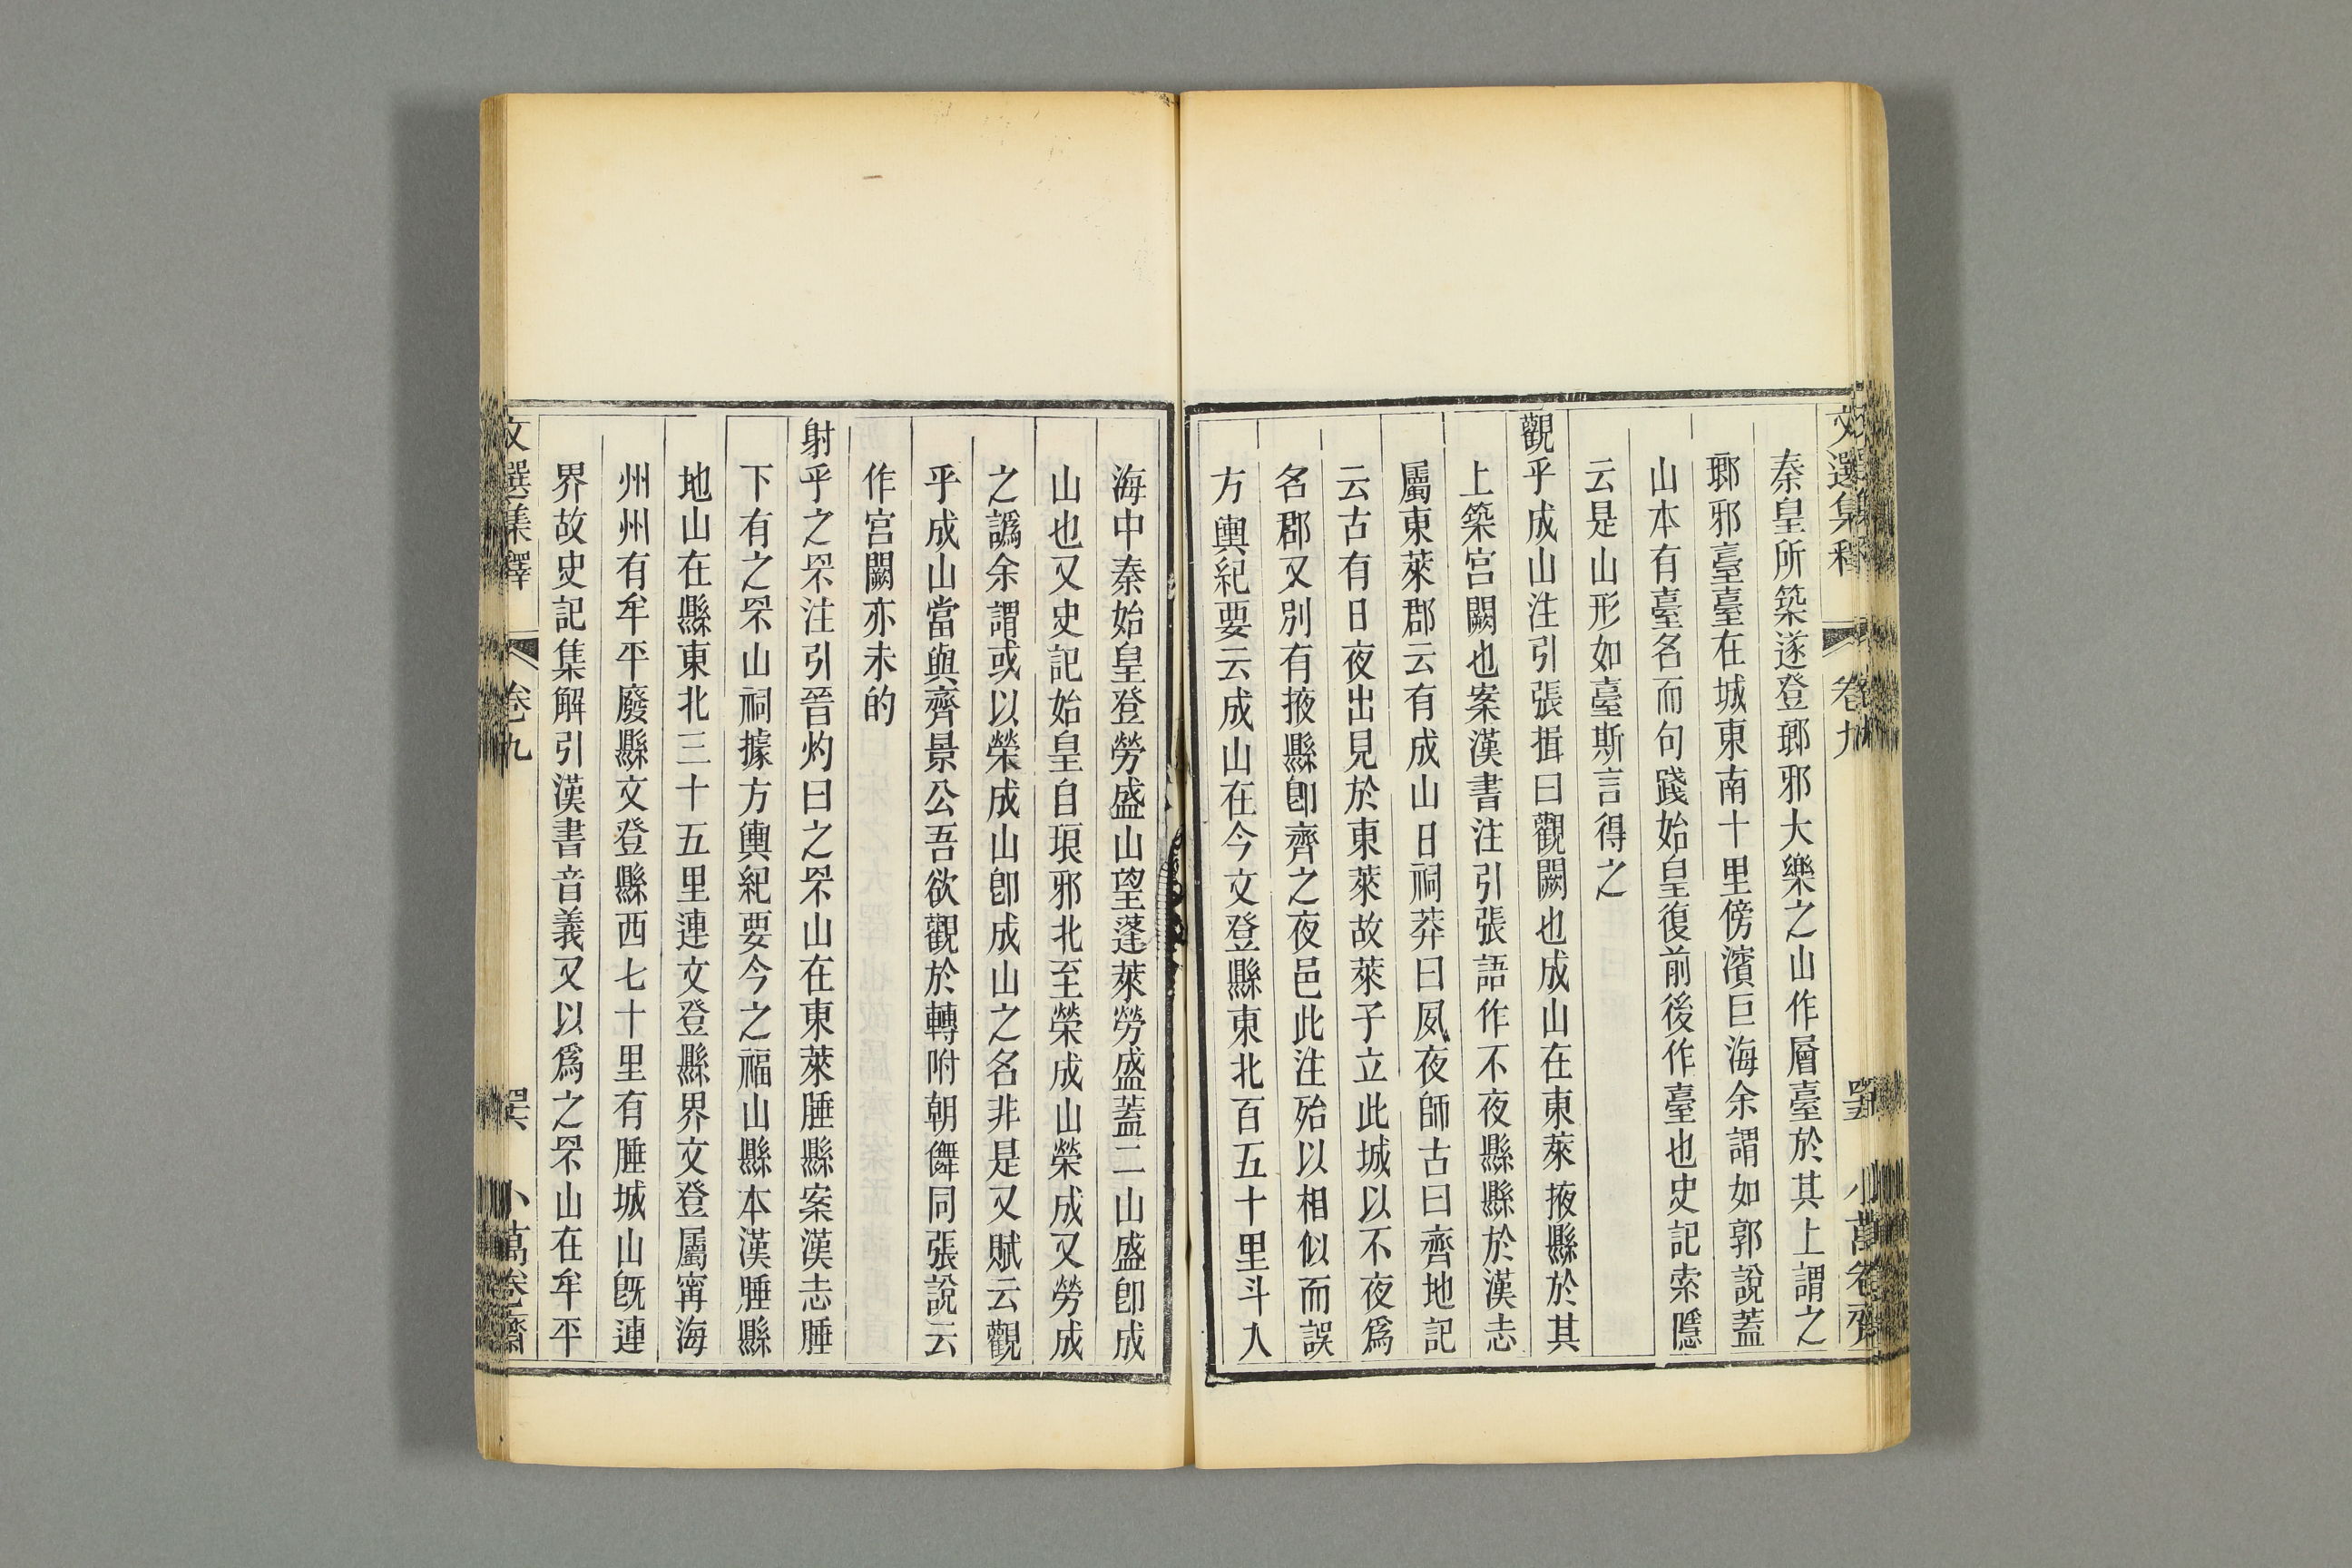 秦皇所築遂登琊邪大樂之山作層臺於其上謂之
琊邪臺臺在城東南十里傍濱巨海余謂如郭說蓋
山本有臺名而句踐始皇復前後作臺也史記索隱
云是山形如臺斯言得之
觀乎成山注引張揖曰觀闕也成山在東萊掖縣於其
上築宮闕也案漢書注引張語作不夜縣縣於漢志
屬東萊郡云有成山日祠莽曰夙夜師古曰齊地記
云古有日夜出見於東萊故萊子立此城以不夜爲
名郡又別有掖縣卽齊之夜邑此注殆以相似而誤
方輿紀要云成山在今文登縣東北百五十里斗入
海中秦始皇登勞盛山望蓬萊勞盛蓋二山盛卽成
山也又史記始皇自琅邪北至榮成山榮成又勞成
之譌余謂或以榮成山卽成山之名非是又賦云觀
乎成山當與齊景公吾欲觀於轉附朝儛同張說云
作宮闕亦未的
射乎之罘注引晉灼曰之罘山在東萊腄縣案漢志腄
下有之罘山祠據方輿紀要今之福山縣本漢腄縣
地山在縣東北三十五里連文登縣界文登屬甯海
州州有牟平廢縣文登縣西七十里有腄城山旣連
界故史記集解引漢書音義又以爲之罘山在牟平
文選集釋 卷九 小萬卷齋